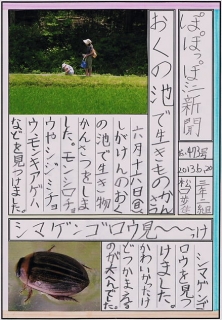 ぽぽっぽ三新聞
No.443号
2013.6.20
三年三組
おくの池で生きものかんさつ
六月十六日、
しがけんのおく
の池で生き物
かんさつをしま
した。モンシロチョ
ウやシジミチョ
ウ、モンキアゲハ
などを見つけました。
シマゲンゴロウ見〜〜つけ
シマゲンゴ
ロウを見つ
けました。
かわいかったけ
どつかまえる
のが大へんでした。